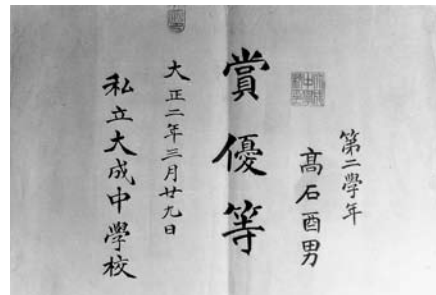 第二學年
髙石酉男
賞優等
大正二年三月廿九日
私立大成中學校